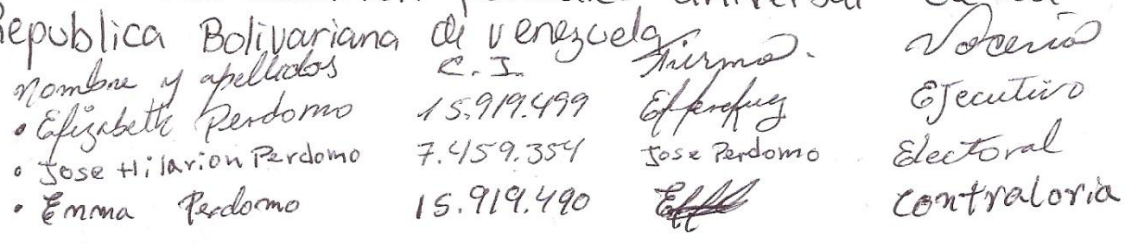 Universal
Republica Bolivariana de Venezuela
Nombre y apellidos C.I. Firma. Vocería
• Elizabeth Perdomo 15.919.499 Ejecutivo
• Jose Hilarion Perdomo 7.459.354 Jose Perdomo Electoral
• Emma Perdomo 15.919.490 Contraloria